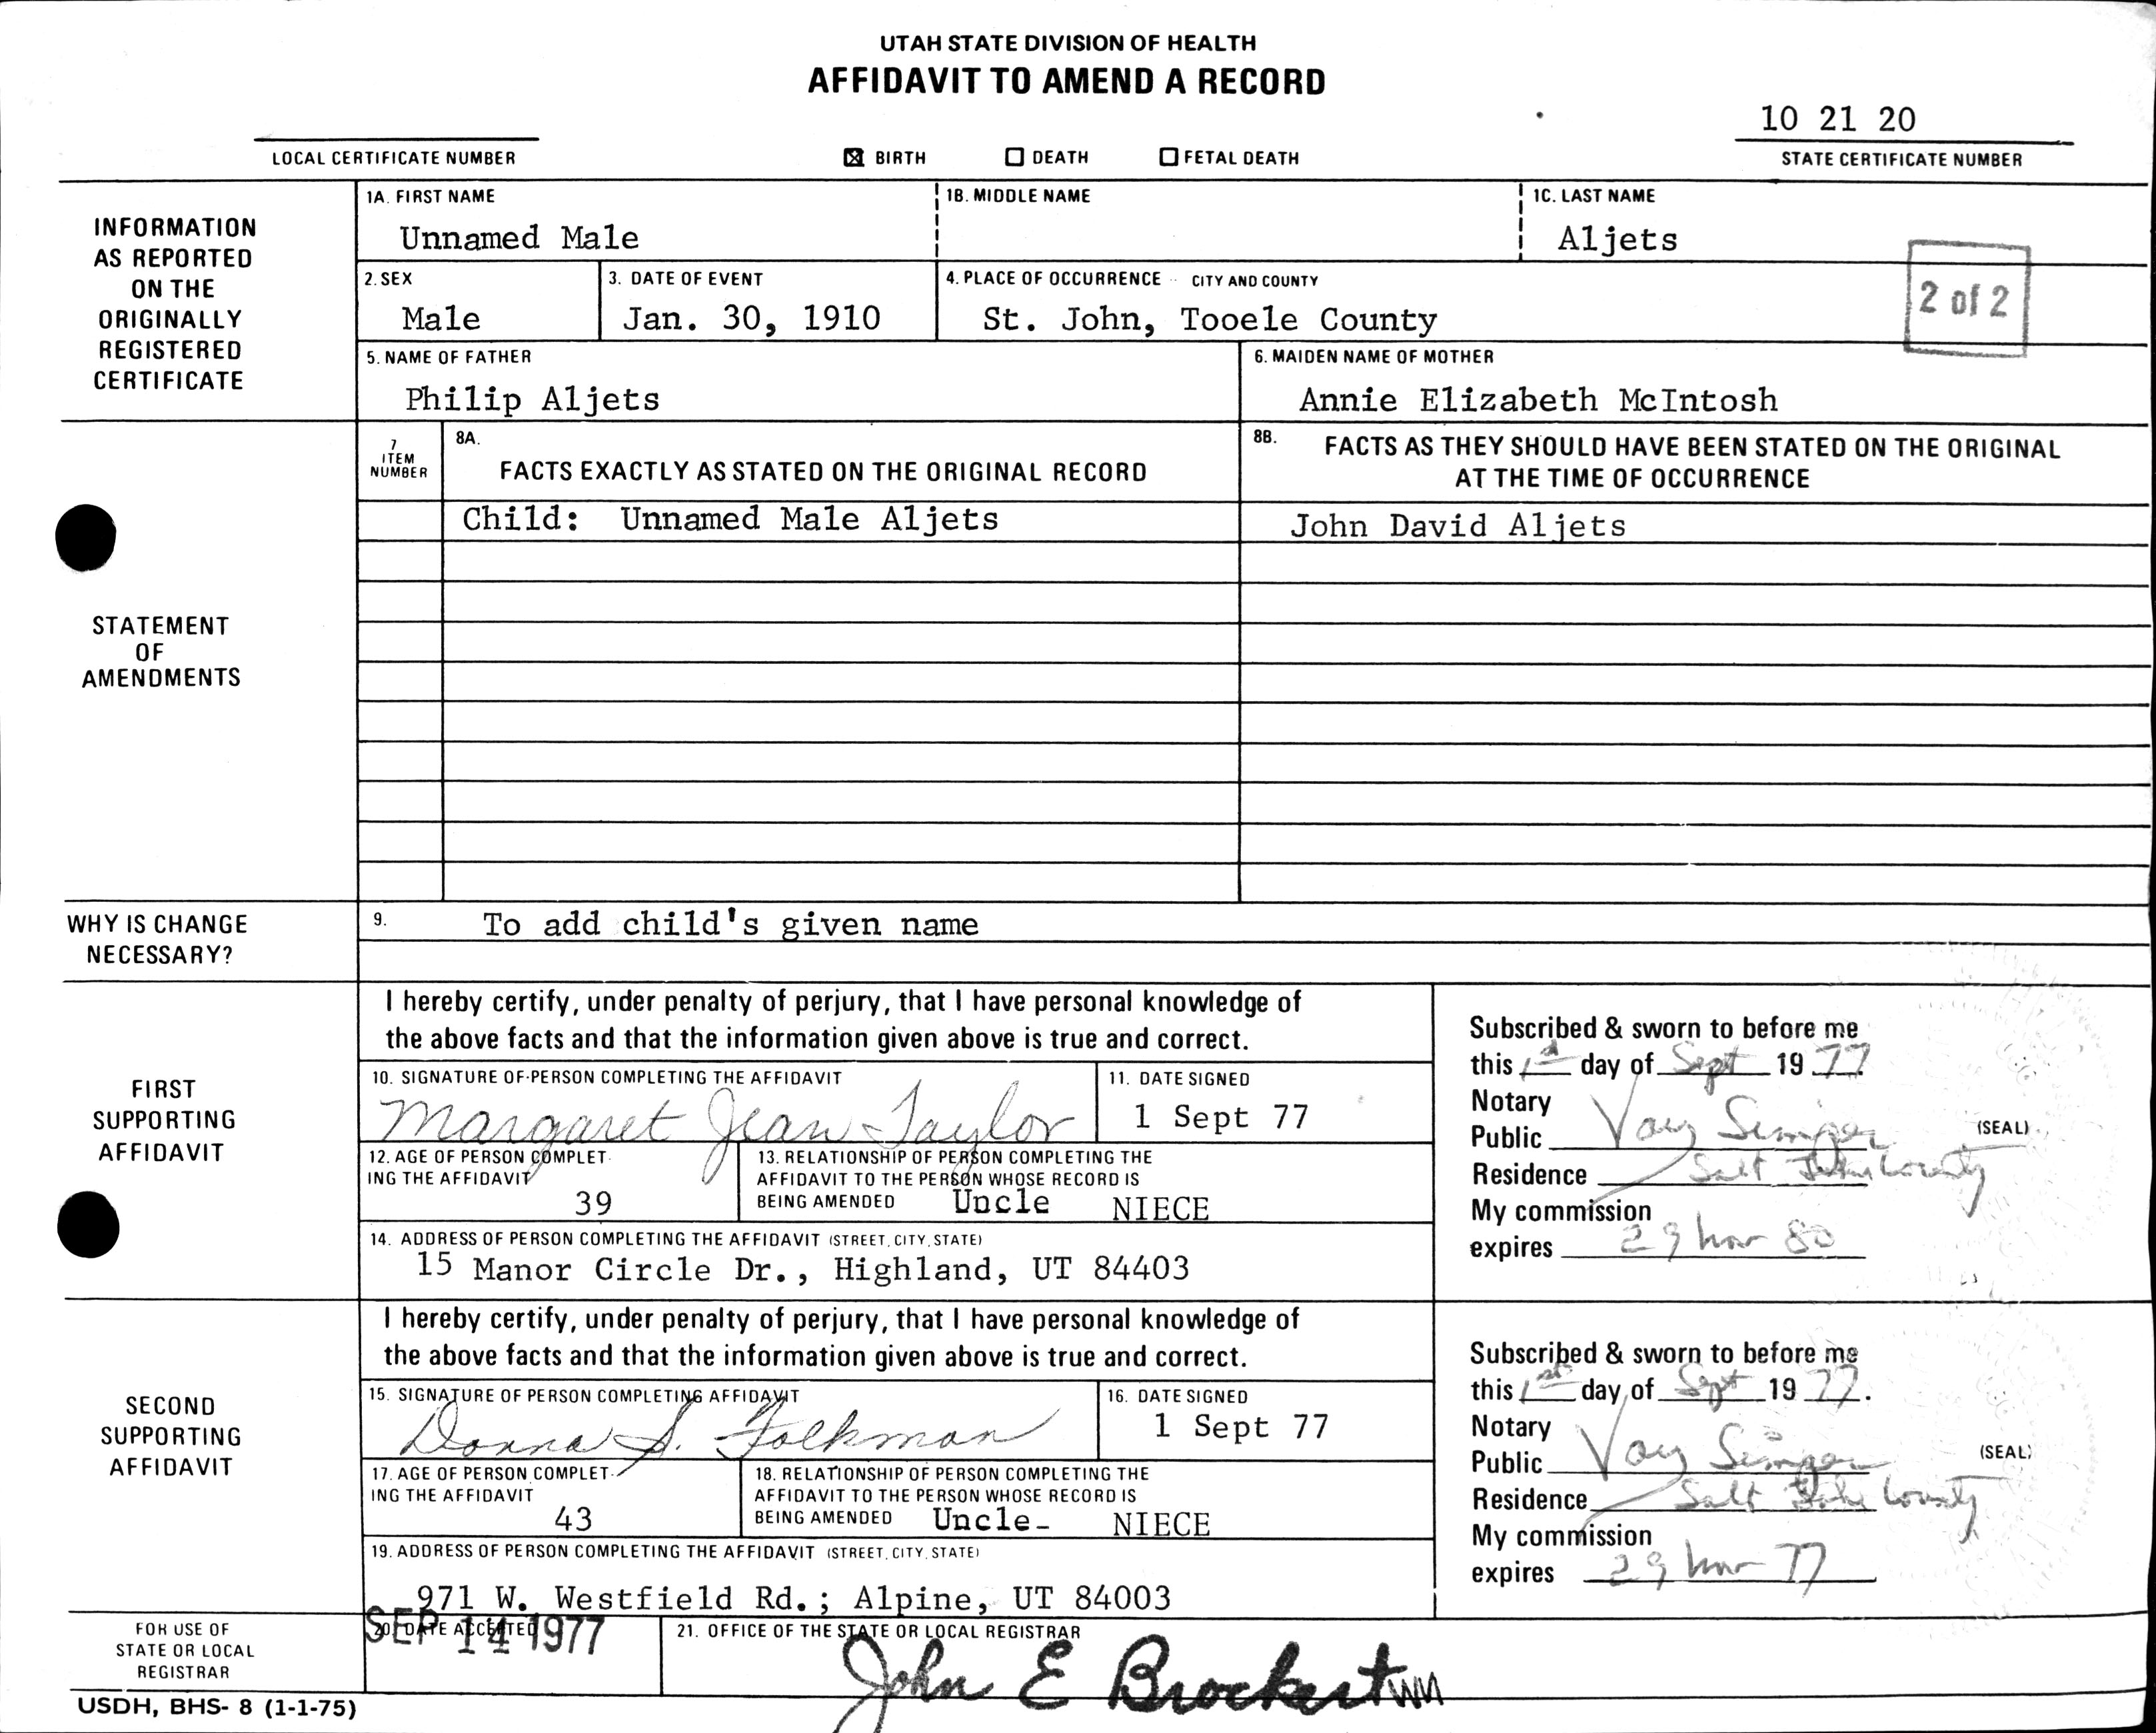 UTAH STATE DIVISION OF HEALTH
AFFIDAVIT TO AMEND A RECORD
10 21 20
LOCAL CERTIFICATE NUMBER
☒ BIRTH ☐ DEATH ☐ FETAL DEATH
STATE CERTIFICATE NUMBER
INFORMATION
AS REPORTED
ON THE
ORIGINALLY
REGISTERED
CERTIFICATE
1A. FIRST NAME
Unnamed Male
1B. MIDDLE NAME
1C. LAST NAME
Aljets
2. SEX
Male
3. DATE OF EVENT
Jan. 30, 1910
4. PLACE OF OCCURRENCE - CITY AND COUNTY
St. John, Tooele County
2 of 2
5. NAME OF FATHER
Philip Aljets
6. MAIDEN NAME OF MOTHER
Annie Elizabeth McIntosh
STATEMENT
OF
AMENDMENTS
7
ITEM
NUMBER
8A.
FACTS EXACTLY AS STATED ON THE ORIGINAL RECORD
8B. FACTS AS THEY SHOULD HAVE BEEN STATED ON THE ORIGINAL
AT THE TIME OF OCCURRENCE
Child: Unnamed Male Aljets
John David Aljets
WHY IS CHANGE
NECESSARY?
9. To add child's given name
FIRST
SUPPORTING
AFFIDAVIT
I hereby certify, under penalty of perjury, that I have personal knowledge of
the above facts and that the information given above is true and correct.
10. SIGNATURE OF PERSON COMPLETING THE AFFIDAVIT
Margaret Jean Taylor
11. DATE SIGNED
1 Sept 77
12. AGE OF PERSON COMPLET-
ING THE AFFIDAVIT
39
13. RELATIONSHIP OF PERSON COMPLETING THE
AFFIDAVIT TO THE PERSON WHOSE RECORD IS
BEING AMENDED Uncle NIECE
14. ADDRESS OF PERSON COMPLETING THE AFFIDAVIT (STREET, CITY, STATE)
15 Manor Circle Dr., Highland, UT 84403
Subscribed & sworn to before me
this day of Sept 19 77
Notary
Public (SEAL)
Residence Salt Lake County
My commission
expires 29 Nov 80
SECOND
SUPPORTING
AFFIDAVIT
I hereby certify, under penalty of perjury, that I have personal knowledge of
the above facts and that the information given above is true and correct.
15. SIGNATURE OF PERSON COMPLETING AFFIDAVIT
Donna S. Folkman
16. DATE SIGNED
1 Sept 77
17. AGE OF PERSON COMPLET-
ING THE AFFIDAVIT
43
18. RELATIONSHIP OF PERSON COMPLETING THE
AFFIDAVIT TO THE PERSON WHOSE RECORD IS
BEING AMENDED Uncle- NIECE
19. ADDRESS OF PERSON COMPLETING THE AFFIDAVIT (STREET, CITY, STATE)
971 W. Westfield Rd.; Alpine, UT 84003
Subscribed & sworn to before me
this 1st day of Sept 19 77.
Notary
Public (SEAL)
Residence Salt Lake County
My commission
expires 29 Nov 77
FOR USE OF
STATE OR LOCAL
REGISTRAR
20. DATE ACCEPTED
SEP 14 1977
21. OFFICE OF THE STATE OR LOCAL REGISTRAR
John E Brockert
USDH, BHS- 8 (1-1-75)